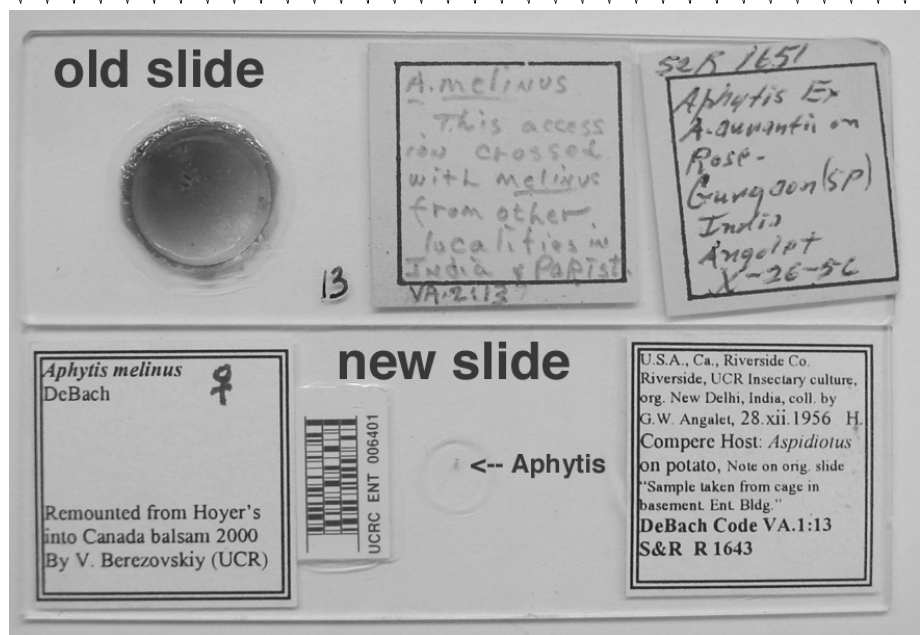 old slide
13
A. melinus
This access
ion crossed
with melinus
from other
localities in
India & Pakist.
VA.2:13
S&R 1651
Aphytis Ex
A. aurantii on
Rose-
Gurgaon (SP)
India
Angelet
X-26-56
new slide
Aphytis melinus
DeBach
♀
Remounted from Hoyer's
into Canada balsam 2000
By V. Berezovskiy (UCR)
UCRC ENT 006401
<-- Aphytis
U.S.A., Ca., Riverside Co.
Riverside, UCR Insectary culture,
org. New Delhi, India, coll. by
G.W. Angalet, 28.xii.1956 H.
Compere Host: Aspidiotus
on potato, Note on orig. slide
"Sample taken from cage in
basement. Ent. Bldg."
DeBach Code VA.1:13
S&R R 1643